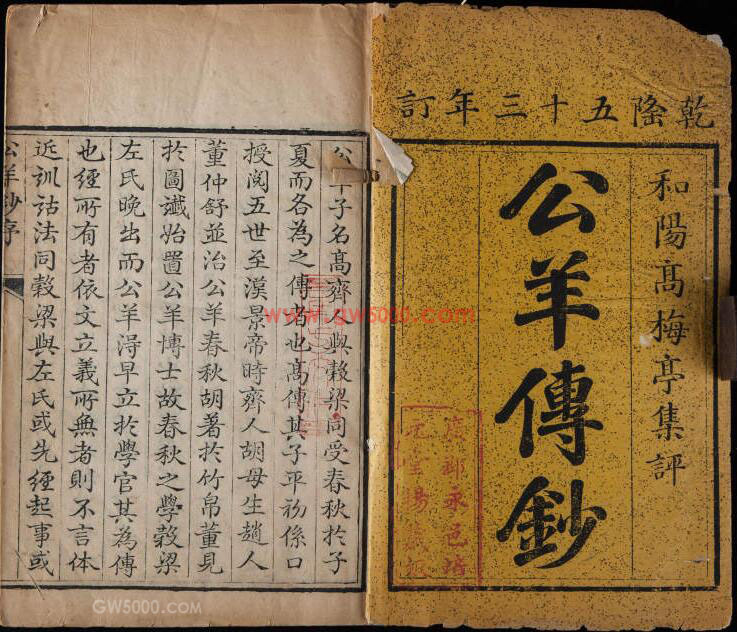 乾隆五十三年訂
和陽髙梅亭集評
公羊傳鈔
廣郡永邑培
元堂楊藏板
公羊子名髙齊人與穀梁同受春秋於子
夏而各為之傳者也髙傳其子平初係口
授閱五世至漢景帝時齊人胡母生趙人
董仲舒並治公羊春秋胡著於竹帛董見
於圖讖始置公羊博士故春秋之學穀梁
左氏晚出而公羊淂早立於學官其為傳
也經所有者依文立義所無者則不言体
近訓詁法同穀梁與左氏或先經起事或
公羊鈔序
www.gw5000.com
GW5000.COM